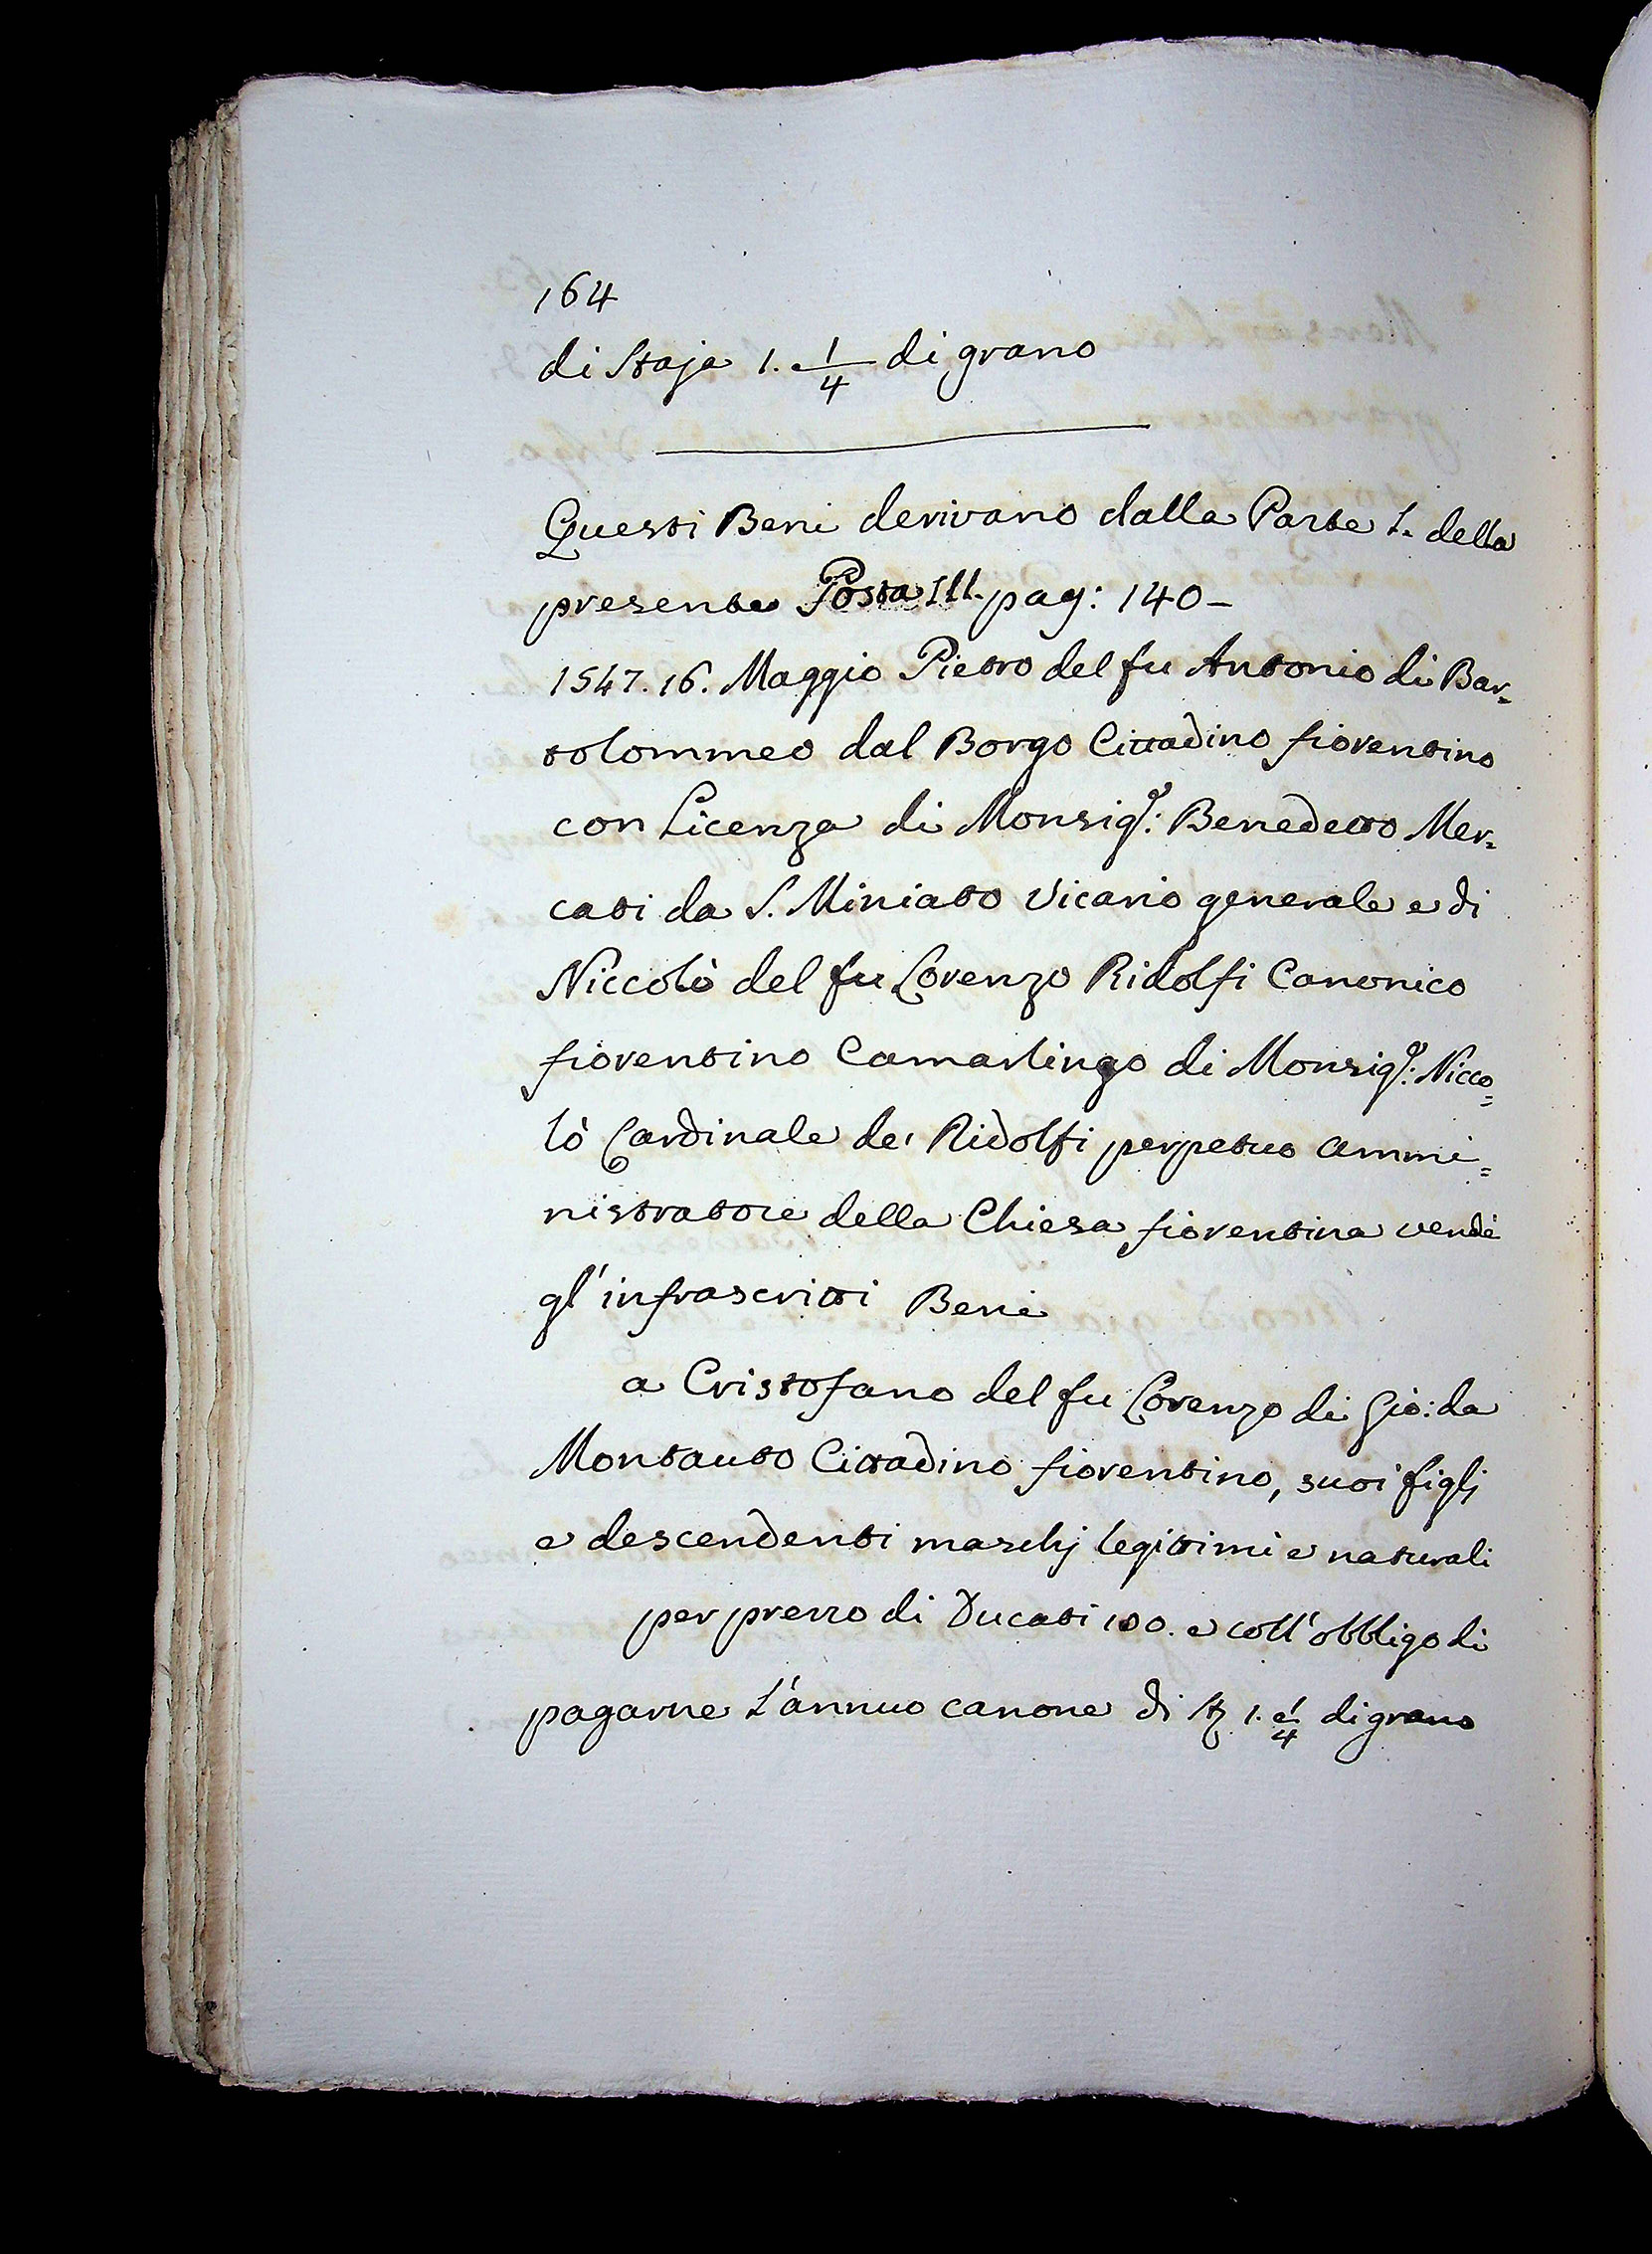 164
di Staja 1. 1/4 di grano
Questi Beni derivano dalla Parte 1. della
presente Posta III. pag: 140-
1547. 16. Maggio Pietro del fu Antonio di Bar=
tolommeo dal Borgo Cittadino fiorentino
con Licenza di Monsig.r: Benedetto Mer=
cati da S. Miniato Vicario generale e di
Niccolò del fu Lorenzo Ridolfi Canonico
fiorentino Camarlingo di Monsig.r: Nicco=
lò Cardinale de' Ridolfi perpetuo ammi=
nistratore della Chiesa fiorentina vendè
gl'infrascritti Beni
a Cristofano del fu Lorenzo di Gio: da
Montauto Cittadino fiorentino, suoi figlj
e descendenti maschj legitimi e naturali
per prezzo di Ducati 100. e coll'obbligo di
pagarne l'annuo canone di St 1. e 1/4 di grano